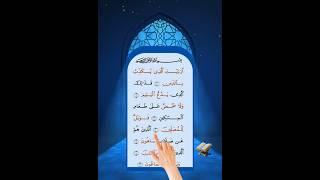 بسم الله الرحمن الرحيم
أَرَءَيْتَ ٱلَّذِى يُكَذِّبُ
بِٱلدِّينِ ١ فَذَٰلِكَ
ٱلَّذِى يَدُعُّ ٱلْيَتِيمَ ٢
وَلَا يَحُضُّ عَلَىٰ طَعَامِ
ٱلْمِسْكِينِ ٣ فَوَيْلٌ
لِّلْمُصَلِّينَ ٤ ٱلَّذِينَ هُمْ
عَن سَاهُونَ ٥